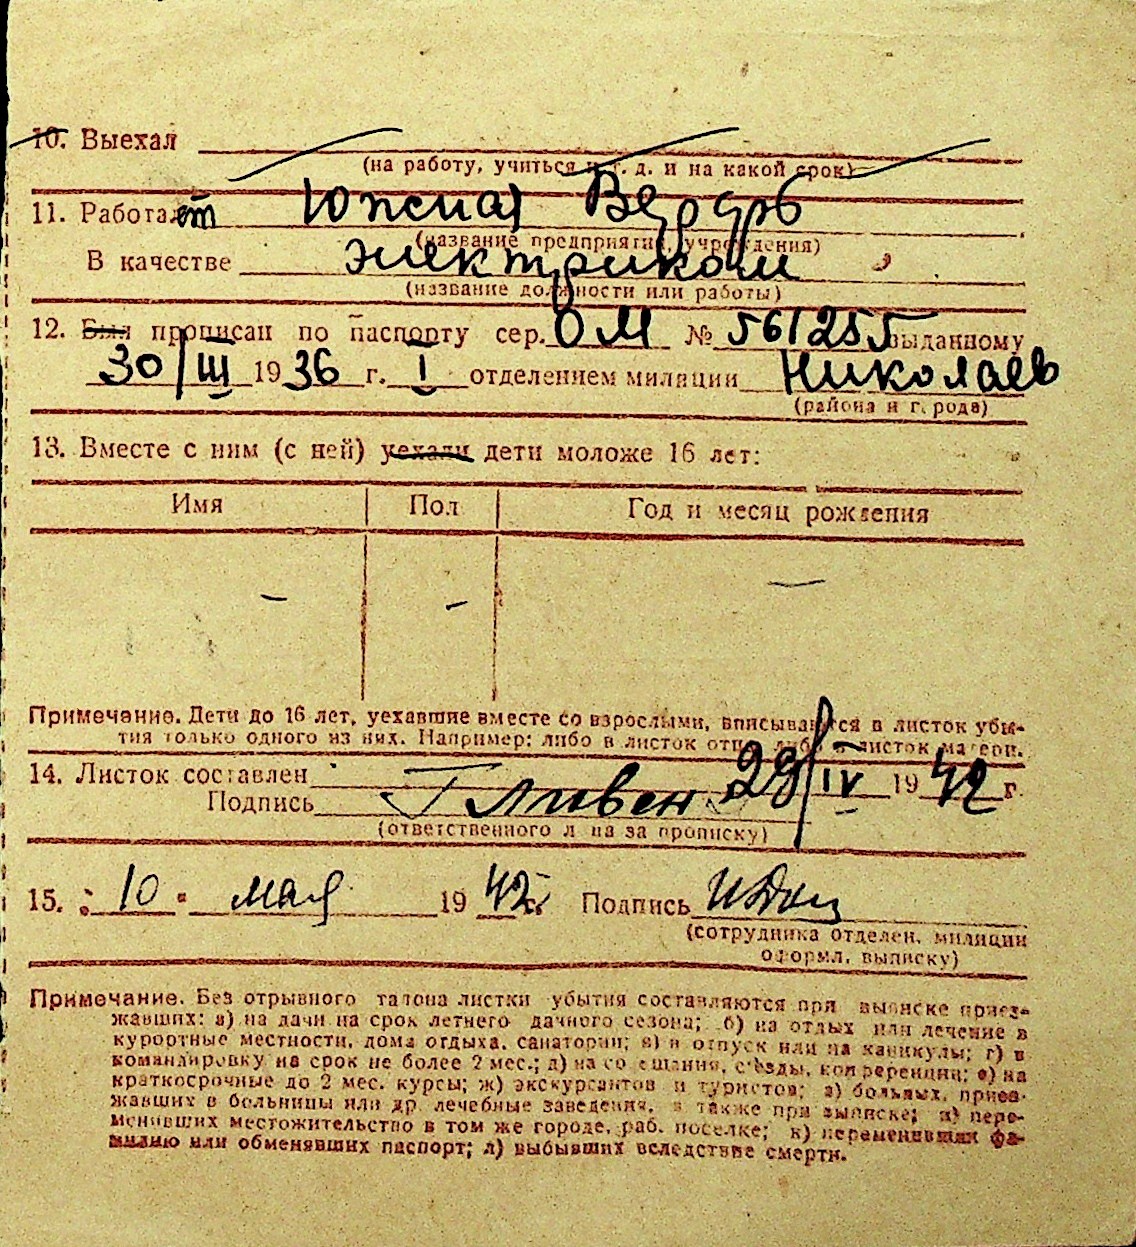 10. Выехал
(на работу, учиться и т. д. и на какой срок)
11. Работает Южная Верфь
(название предприятия, учреждения)
В качестве электриком
(название должности или работы)
12. Был прописан по паспорту сер. ОМ № 561255 выданному
30/III 1936 г. I отделением милиции Николаев
(района и города)
13. Вместе с ним (с ней) уехали дети моложе 16 лет:
Имя Пол Год и месяц рождения
— — —
Примечание. Дети до 16 лет, уехавшие вместе со взрослыми, вписываются в листок убы-
тия только одного из них. Например: либо в листок отца, либо в листок матери.
14. Листок составлен 29/IV 1942 г.
Подпись
(ответственного лица за прописку)
15. "10" мая 1942 г. Подпись
(сотрудника отделен. милиции
оформл. выписку)
Примечание. Без отрывного талона листки убытия составляются при выписке приез-
жавших: а) на дачи на срок летнего дачного сезона; б) на отдых или лечение в
курортные местности, дома отдыха, санатории; в) в отпуск или на каникулы; г) в
командировку на срок не более 2 мес.; д) на совещания, съезды, конференции; е) на
краткосрочные до 2 мес. курсы; ж) экскурсантов и туристов; з) больных, приез-
жавших в больницы или др. лечебные заведения, а также при выписке; и) пере-
менивших местожительство в том же городе, раб. поселке; к) переменивших фа-
милию или обменявших паспорт; л) выбывших вследствие смерти.